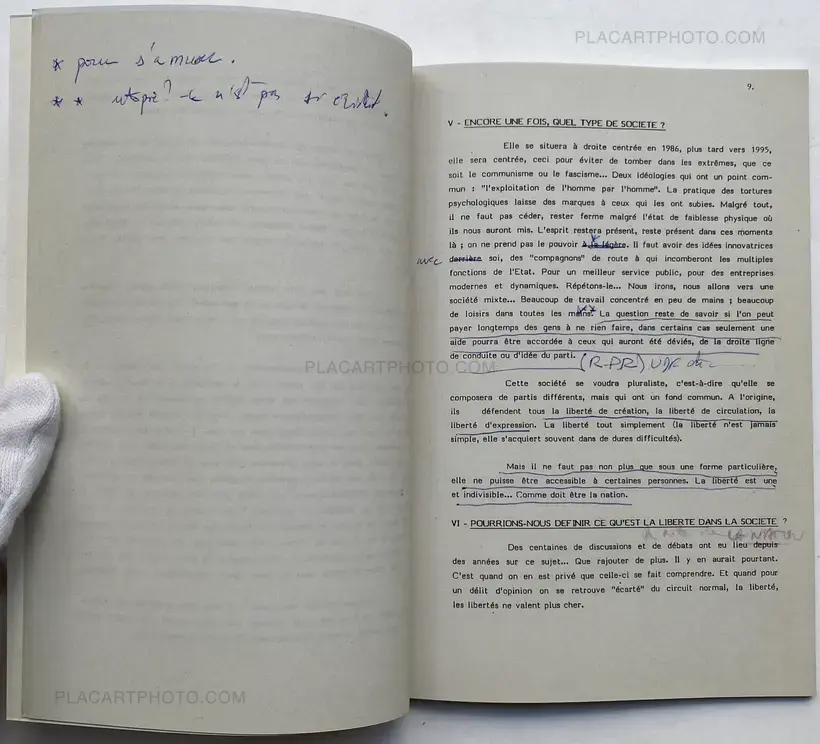 PLACARTPHOTO.COM
* pour s'amuser.
* * utopie? ce n'est pas si
9.
V - ENCORE UNE FOIS, QUEL TYPE DE SOCIETE ?
Elle se situera à droite centrée en 1986, plus tard vers 1995,
elle sera centrée, ceci pour éviter de tomber dans les extrêmes, que ce
soit le communisme ou le fascisme... Deux idéologies qui ont un point com-
mun : "l'exploitation de l'homme par l'homme". La pratique des tortures
psychologiques laisse des marques à ceux qui les ont subies. Malgré tout,
il ne faut pas céder, rester ferme malgré l'état de faiblesse physique où
ils nous auront mis. L'esprit restera présent, reste présent dans ces moments
là ; on ne prend pas le pouvoir à la légère. Il faut avoir des idées innovatrices
avec derrière soi, des "compagnons" de route à qui incomberont les multiples
fonctions de l'Etat. Pour un meilleur service public, pour des entreprises
modernes et dynamiques. Répétons-le... Nous irons, nous allons vers une
société mixte... Beaucoup de travail concentré en peu de mains ; beaucoup
de loisirs dans toutes les mains. La question reste de savoir si l'on peut
payer longtemps des gens à ne rien faire, dans certains cas seulement une
aide pourra être accordée à ceux qui auront été déviés, de la droite ligne
de conduite ou d'idée du parti. (R-PR) UDF etc...
PLACARTPHOTO.COM
Cette société se voudra pluraliste, c'est-à-dire qu'elle se
composera de partis différents, mais qui ont un fond commun. A l'origine,
ils défendent tous la liberté de création, la liberté de circulation, la
liberté d'expression. La liberté tout simplement (la liberté n'est jamais
simple, elle s'acquiert souvent dans de dures difficultés).
Mais il ne faut pas non plus que sous une forme particulière,
elle ne puisse être accessible à certaines personnes. La liberté est une
et indivisible... Comme doit être la nation.
VI - POURRIONS-NOUS DEFINIR CE QU'EST LA LIBERTE DANS LA SOCIETE ?
LA NATION
Des centaines de discussions et de débats ont eu lieu depuis
des années sur ce sujet... Que rajouter de plus. Il y en aurait pourtant.
C'est quand on en est privé que celle-ci se fait comprendre. Et quand pour
un délit d'opinion on se retrouve "écarté" du circuit normal, la liberté,
les libertés ne valent plus cher.
PLACARTPHOTO.COM